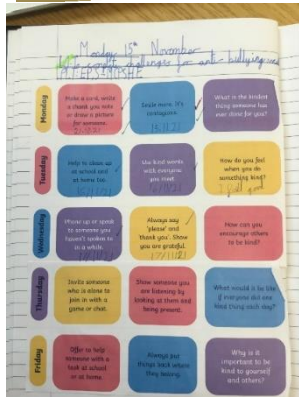 Monday 15th November
complete challenges for anti-bullying week
Monday
Make a card, write
a thank you note
or draw a picture
for someone.
Smile more. It's
contagious.
What is the kindest
thing someone has
ever done for you?
Tuesday
Help to clean up
at school and
at home too.
Use kind words
with everyone
you meet.
How do you feel
when you do
something kind?
I feel good
Wednesday
Phone up or speak
to someone you
haven't spoken to
in a while.
Always say
'please' and
'thank you'. Show
you are grateful.
How can you
encourage others
to be kind?
Thursday
Invite someone
who is alone to
join in with a
game or chat.
Show someone you
are listening by
looking at them and
being present.
What would it be like
if everyone did one
kind thing each day?
Friday
Offer to help
someone with a
task at school
or at home.
Always put
things back where
they belong.
Why is it
important to be
kind to yourself
and others?